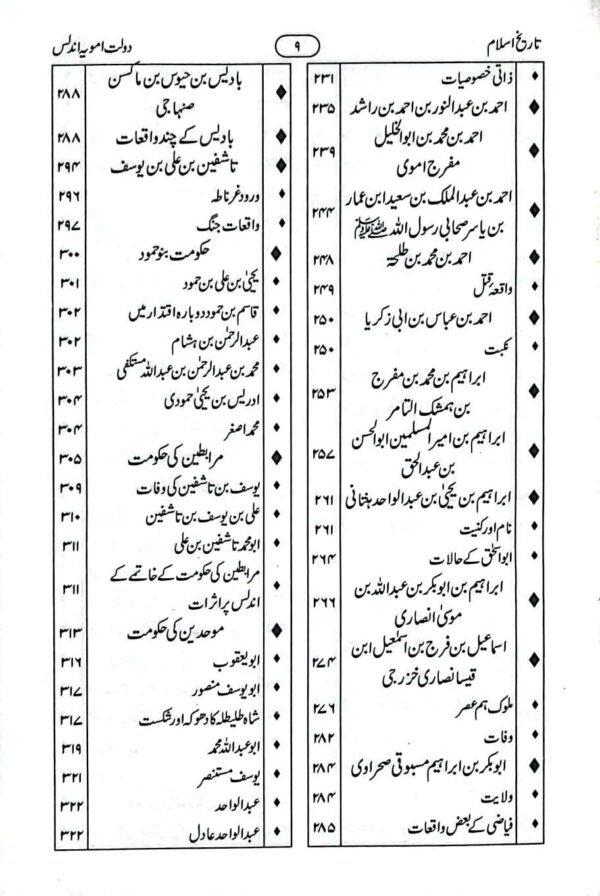 تاریخ اسلام ۹ دولت امویہ اندلس
ذاتی خصوصیات ۲۳۱
احمد بن عبدالنور بن احمد بن راشد ۲۳۵
احمد بن محمد بن ابوالخلیل
مفرج اموی ۲۳۹
احمد بن عبدالملک بن سعید ابن عمار
بن یاسر صحابی رسول اللہ ﷺ ۲۴۴
احمد بن محمد بن طلحۃ ۲۴۸
واقعۂ قتل ۲۴۹
احمد بن عباس بن ابی زکریا ۲۵۰
نکبت ۲۵۰
ابراہیم بن محمد بن مفرج
بن ہمشک التامر ۲۵۳
ابراہیم بن امیر المسلمین ابوالحسن
بن عبدالحق ۲۵۷
ابراہیم بن یحییٰ بن عبدالواحد ہنتانی ۲۶۱
نام اور کنیت ۲۶۱
ابوالحق کے حالات ۲۶۴
ابراہیم بن ابوبکر بن عبداللہ بن
موسیٰ انصاری ۲۶۶
اسماعیل بن فرج بن اسمٰعیل ابن
قیسا نصاری خزرجی ۲۷۴
ملوک ہم عصر ۲۷۶
وفات ۲۸۲
ابوبکر بن ابراہیم مسبوقی صحراوی ۲۸۴
ولایت ۲۸۴
فیاضی کے بعض واقعات ۲۸۵
بادیس بن حیوس بن ماکسن
صنہاجی ۲۸۸
بادیس کے چند واقعات ۲۸۸
تاشفین بن علی بن یوسف ۲۹۴
ورود غرناطہ ۲۹۶
واقعات جنگ ۲۹۷
حکومت بنو حمود ۳۰۰
یحییٰ بن علی بن حمود ۳۰۱
قاسم بن حمود دوبارہ اقتدار میں ۳۰۲
عبدالرحمٰن بن ہشام ۳۰۲
محمد بن عبدالرحمٰن بن عبداللہ مستکفی ۳۰۳
ادریس بن یحییٰ حمودی ۳۰۴
محمد اصغر ۳۰۴
مرابطین کی حکومت ۳۰۵
یوسف بن تاشفین کی وفات ۳۰۹
علی بن یوسف بن تاشفین ۳۱۰
ابو محمد تاشفین بن علی ۳۱۱
مرابطین کی حکومت کے خاتمے کے
اندلس پر اثرات ۳۱۱
موحدین کی حکومت ۳۱۳
ابو یعقوب ۳۱۶
ابو یوسف منصور ۳۱۷
شاہ طلیطلہ کا دھوکہ اور شکست ۳۱۷
ابو عبداللہ محمد ۳۱۹
یوسف مستنصر ۳۲۱
عبدالواحد ۳۲۲
عبدالواحد عادل ۳۲۲